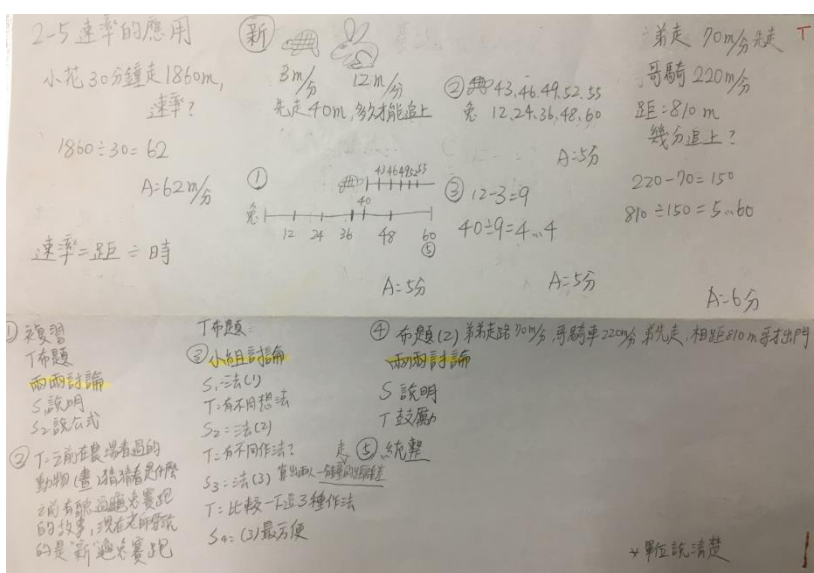 2-5 速率的應用
小花30分鐘走1860m,
速率?
1860÷30=62
A:62m/分
速率=距÷時
新
3m/分 12m/分
先走40m,多久才能追上
①
43 46 49 52 55
40
兔
12 24 36 48 60
⑤
A:5分
② 43、46、49、52、55
兔 12、24、36、48、60
A=5分
③ 12-3=9
40÷9=4…4
A=5分
弟走 70m/分 先走
T
哥騎 220m/分
距=810m
幾分追上?
220-70=150
810÷150=5…60
A=6分
① 複習
T布題
兩兩討論
S1說明
S2說公式
② T:之前在農場看過的
動物(畫)猜猜看是什麼
之前有聽過龜兔賽跑
的故事,現在老師要說
的是"新"龜兔賽跑
T布題:
③ 小組討論
S1=法(1)
T:有不同想法
S2=法(2)
T:有不同作法?
S3=法(3)
T:比較一下這3種作法
S4=(3)最方便
④ 布題(2) 弟弟走路70m/分,哥騎車220m/分 弟先走,相距810m哥才出門
兩兩討論
S說明
T鼓勵
⑤ 統整
*單位說清楚